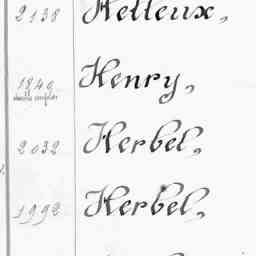 2138 Helleux,
1840 Henry,
2032 Herbel,
1992 Herbel,